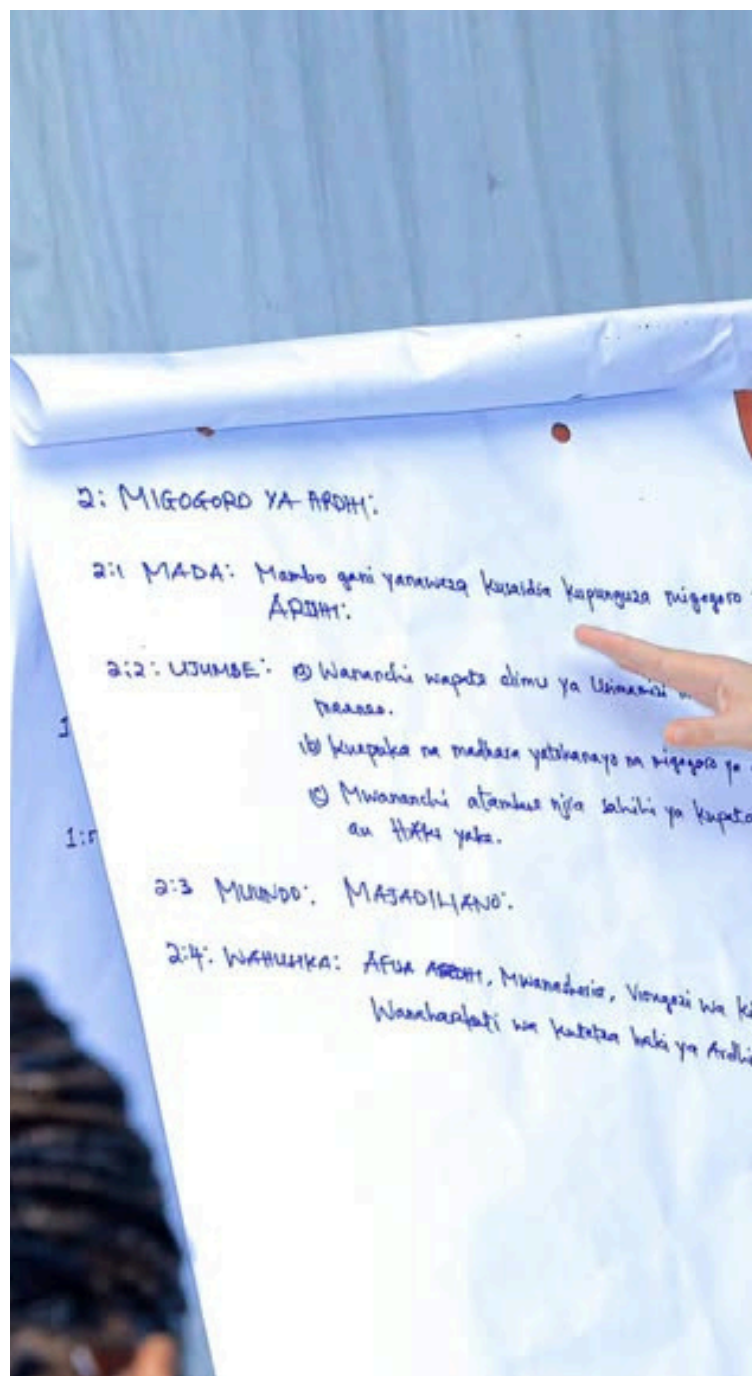 2: MIGOGORO YA ARDHI:
2:1 MADA: Mambo gani yanaweza kusaidia kupunguza migogoro
ARDHI:
2:2: UJUMBE: (a) Wananchi wapate elimu ya Usimamizi
(b) Kuepuka na madhara yatokanayo na migogoro ya
1
(c) Mwananchi atambue njia sahihi ya kupata
au HAKI yake.
1:
2:3 MUUNDO: MAJADILIANO:
2:4: WAHUSIKA: AFISA ARDHI, Mwanasheria, Viongozi wa
Wanaharakati wa kutetea haki ya Ardhi